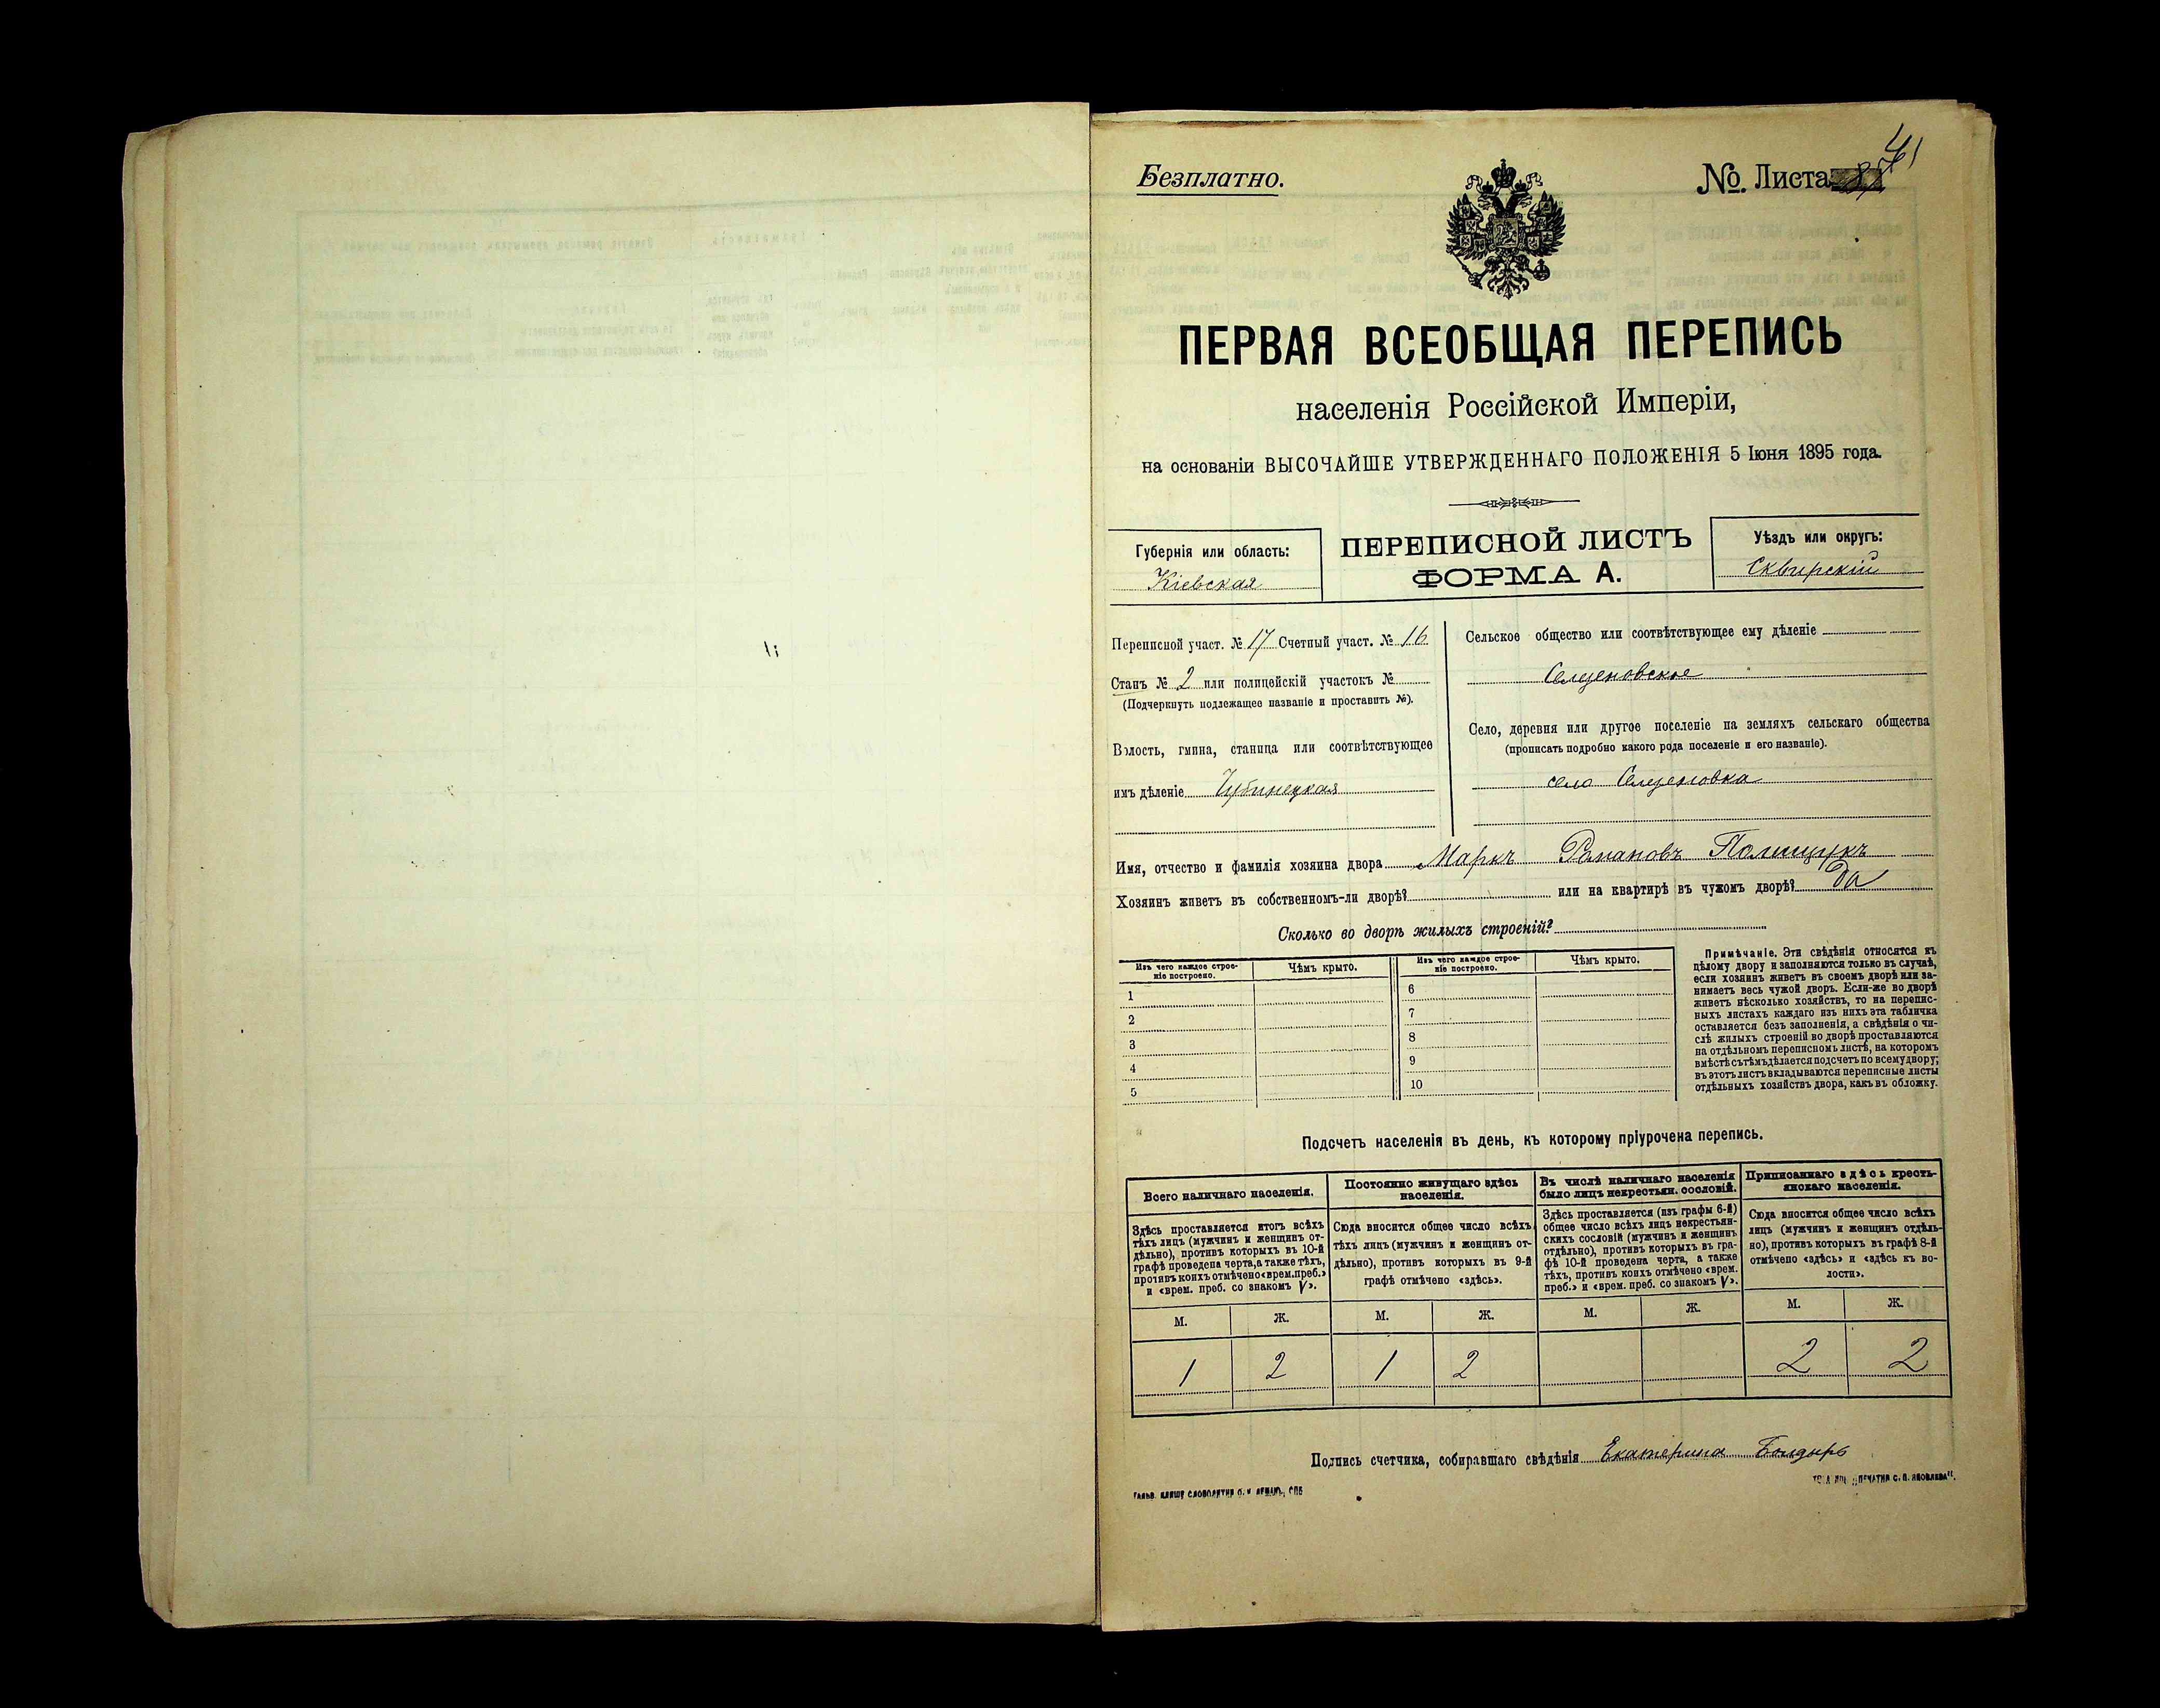 Безплатно.
№ Листа 41
ПЕРВАЯ ВСЕОБЩАЯ ПЕРЕПИСЬ
населенія Россійской Имперіи,
на основаніи ВЫСОЧАЙШЕ УТВЕРЖДЕННАГО ПОЛОЖЕНІЯ 5 Іюня 1895 года.
Губернія или область:
Кіевская
ПЕРЕПИСНОЙ ЛИСТЪ
ФОРМА А.
Уѣздъ или округъ:
Сквирскій
Переписной участ. № 17 Счетный участ. № 16
Станъ № 2 или полицейскій участокъ №
(Подчеркнуть подлежащее названіе и проставить №).
Волость, гмина, станица или соотвѣтствующее
имъ дѣленіе Чубинецкая
Сельское общество или соотвѣтствующее ему дѣленіе
Селезеновское
Село, деревня или другое поселеніе на земляхъ сельскаго общества
(прописать подробно какого рода поселеніе и его названіе).
село Селезеновка
Имя, отчество и фамилія хозяина двора Маркъ Романовъ Полищукъ
Хозяинъ живетъ въ собственномъ-ли дворѣ? или на квартирѣ въ чужомъ дворѣ? Да
Сколько во дворѣ жилыхъ строеній?
Изъ чего каждое строе-
ніе построено.
Чѣмъ крыто.
1
2
3
4
5
Изъ чего каждое строе-
ніе построено.
Чѣмъ крыто.
6
7
8
9
10
Примѣчаніе. Эти свѣдѣнія относятся къ
цѣлому двору и заполняются только въ случаѣ,
если хозяинъ живетъ въ своемъ дворѣ или за-
нимаетъ весь чужой дворъ. Если-же во дворѣ
живетъ нѣсколько хозяйствъ, то на перепис-
ныхъ листахъ каждаго изъ нихъ эта табличка
оставляется безъ заполненія, а свѣдѣнія о чи-
слѣ жилыхъ строеній во дворѣ проставляются
на отдѣльномъ переписномъ листѣ, на которомъ
вмѣстѣ съ тѣмъ дѣлается подсчетъ по всему двору;
въ этотъ листъ вкладываются переписные листы
отдѣльныхъ хозяйствъ двора, какъ въ обложку.
Подсчетъ населенія въ день, къ которому пріурочена перепись.
Всего наличнаго населенія.
Здѣсь проставляется итогъ всѣхъ
тѣхъ лицъ (мужчинъ и женщинъ от-
дѣльно), противъ которыхъ въ 10-й
графѣ проведена черта, а также тѣхъ,
противъ коихъ отмѣчено «врем. преб.»
и «врем. преб. со знакомъ V».
М. Ж.
1 2
Постоянно живущаго здѣсь
населенія.
Сюда вносится общее число всѣхъ
тѣхъ лицъ (мужчинъ и женщинъ от-
дѣльно), противъ которыхъ въ 9-й
графѣ отмѣчено «здѣсь».
М. Ж.
1 2
Въ числѣ наличнаго населенія
было лицъ некрестьян. сословій.
Здѣсь проставляется (изъ графы 6-й)
общее число всѣхъ лицъ некрестьян-
скихъ сословій (мужчинъ и женщинъ
отдѣльно), противъ которыхъ въ гра-
фѣ 10-й проведена черта, а также
тѣхъ, противъ коихъ отмѣчено «врем.
преб.» и «врем. преб. со знакомъ V».
М. Ж.
Приписаннаго здѣсь кресть-
янскаго населенія.
Сюда вносится общее число всѣхъ
лицъ (мужчинъ и женщинъ отдѣль-
но), противъ которыхъ въ графѣ 8-й
отмѣчено «здѣсь» и «здѣсь къ во-
лости».
М. Ж.
2 2
Подпись счетчика, собиравшаго свѣдѣнія Екатерина Бондырь